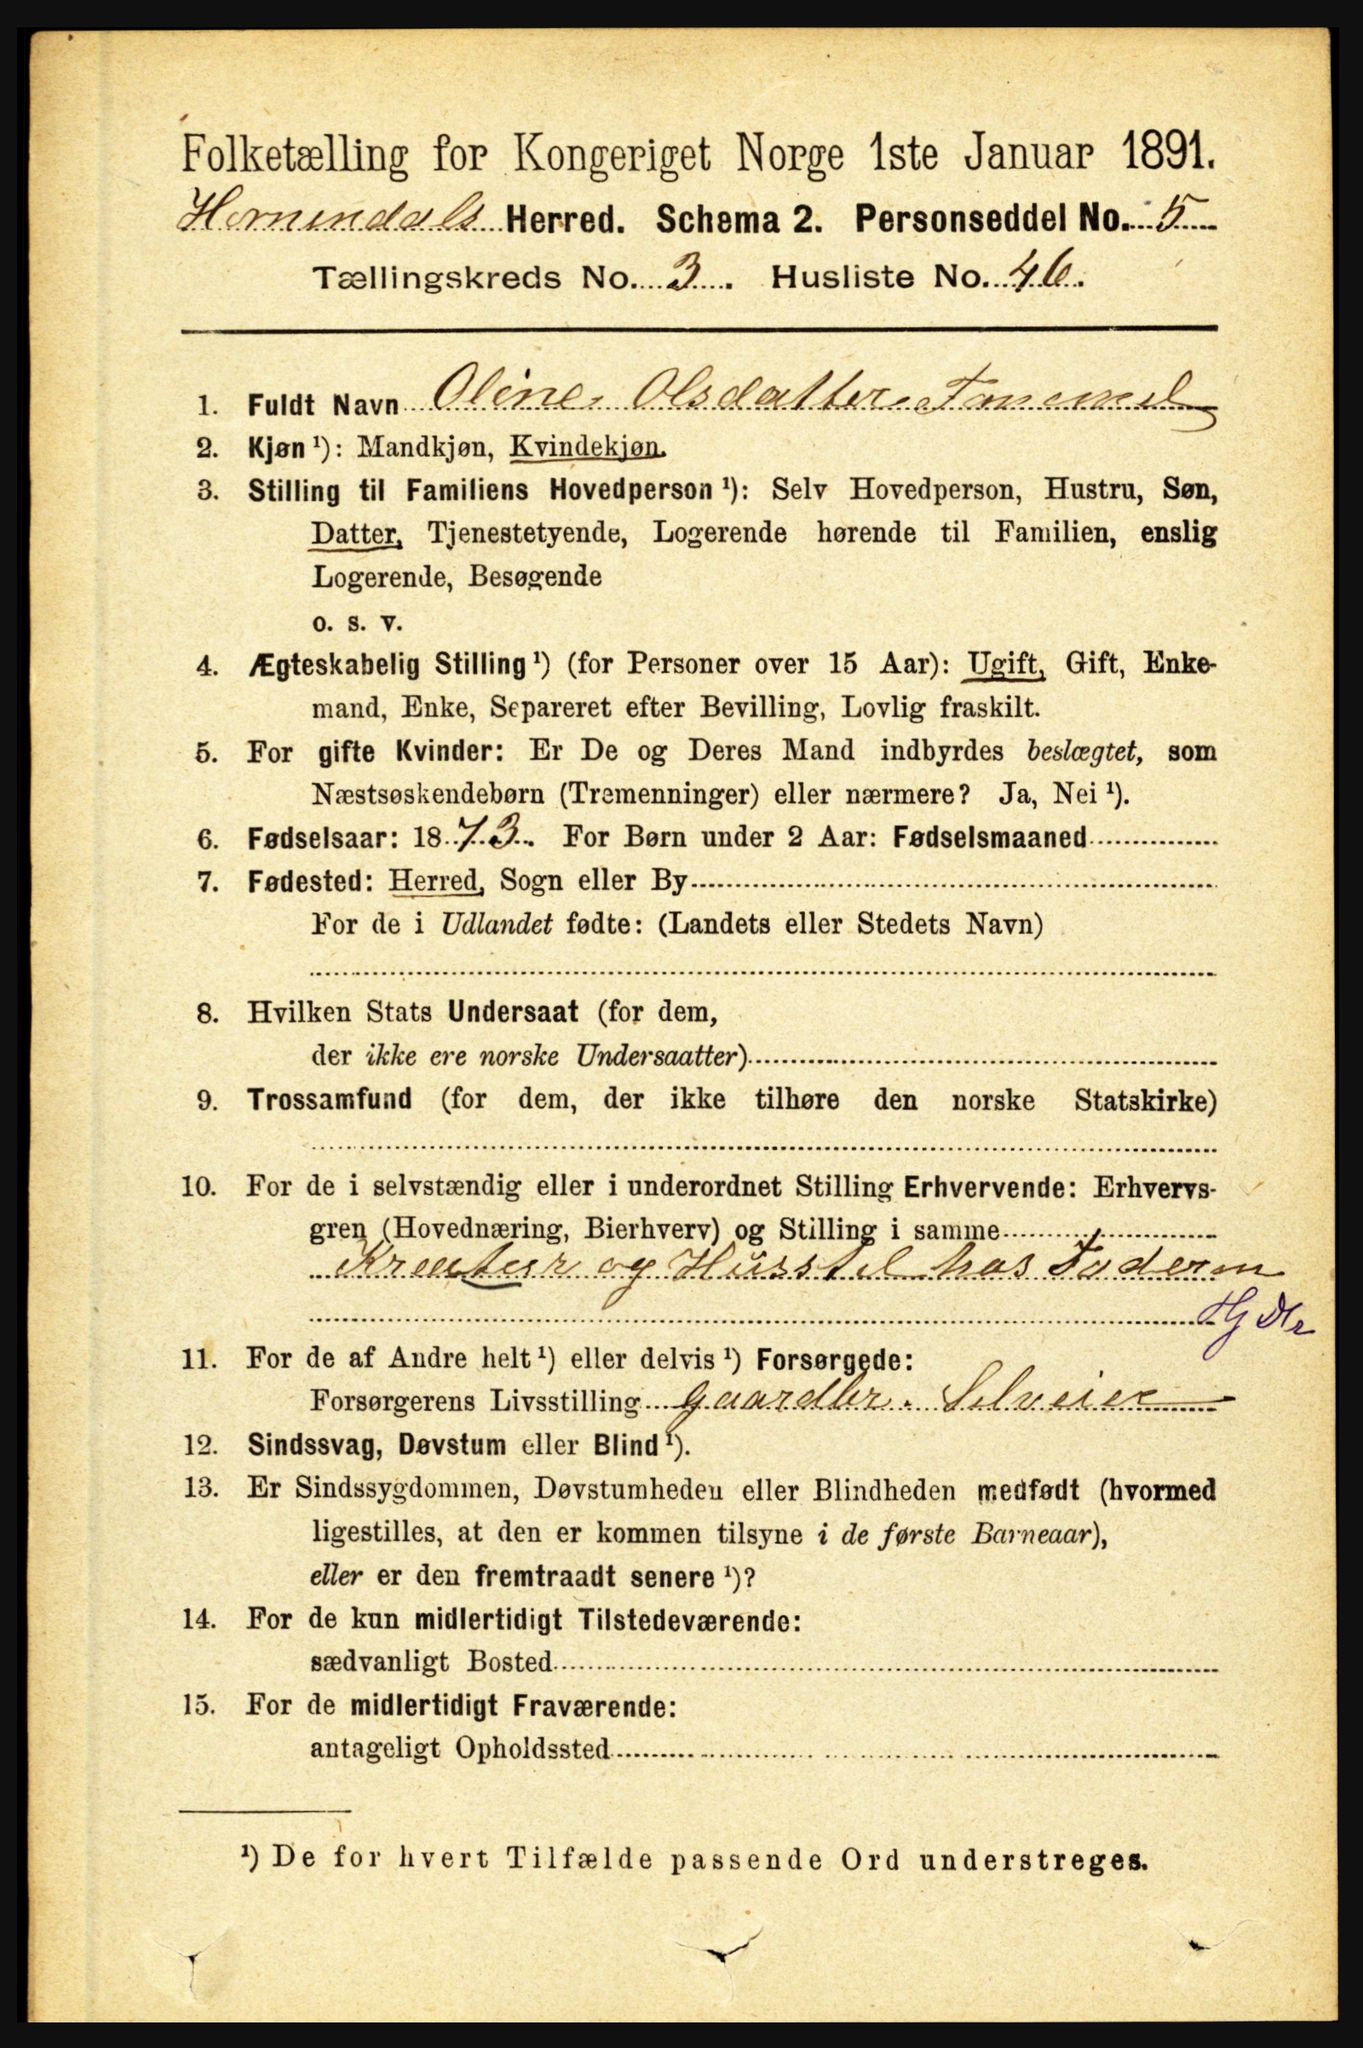 Folketælling for Kongeriget Norge 1ste Januar 1891.
Hornindals Herred. Schema 2. Personseddel No. 5
Tællingskreds No. 3. Husliste No. 46.
1. Fuldt Navn Oline Olsdatter
2. Kjøn ¹): Mandkjøn, Kvindekjøn.
3. Stilling til Familiens Hovedperson ¹): Selv Hovedperson, Hustru, Søn,
Datter, Tjenestetyende, Logerende hørende til Familien, enslig
Logerende, Besøgende
o. s. v.
4. Ægteskabelig Stilling ¹) (for Personer over 15 Aar): Ugift, Gift, Enke-
mand, Enke, Separeret efter Bevilling, Lovlig fraskilt.
5. For gifte Kvinder: Er De og Deres Mand indbyrdes beslægtet, som
Næstsøskendebørn (Tremenninger) eller nærmere? Ja, Nei ¹).
6. Fødselsaar: 1873. For Børn under 2 Aar: Fødselsmaaned
7. Fødested: Herred, Sogn eller By
For de i Udlandet fødte: (Landets eller Stedets Navn)
8. Hvilken Stats Undersaat (for dem,
der ikke ere norske Undersaatter)
9. Trossamfund (for dem, der ikke tilhøre den norske Statskirke)
10. For de i selvstændig eller i underordnet Stilling Erhvervende: Erhvervs-
gren (Hovednæring, Bierhverv) og Stilling i samme
Kreatur og Husstel hos Faderen
11. For de af Andre helt ¹) eller delvis ¹) Forsørgede:
Forsørgerens Livsstilling Gaardbr. Selveier
12. Sindssvag, Døvstum eller Blind ¹).
13. Er Sindssygdommen, Døvstumheden eller Blindheden medfødt (hvormed
ligestilles, at den er kommen tilsyne i de første Barneaar),
eller er den fremtraadt senere ¹)?
14. For de kun midlertidigt Tilstedeværende:
sædvanligt Bosted
15. For de midlertidigt Fraværende:
antageligt Opholdssted
¹) De for hvert Tilfælde passende Ord understreges.